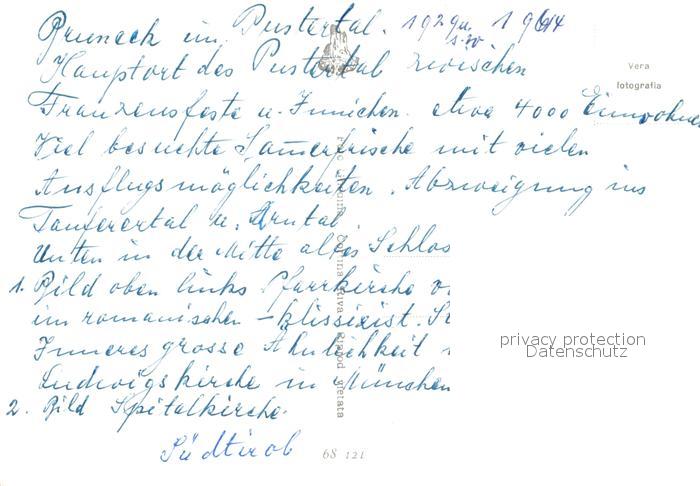 Bruneck im Pustertal. 1929 u. 1964
Hauptort des Pustertal zwischen
Vera
fotografia
Franzensfeste u. Innichen. etwa 4000 Einwohne
Viel besuchte Sommerfrische mit vielen
Ausflugsmöglichkeiten. Abzweigung ins
Taufertal u. Ahrntal.
Unten in der Mitte altes Schlos
1. Bild oben links Pfarrkirche v.
im romanischen - klissizist. St
Inneres grosse Ähnlichkeit
Ludwigskirche in München
2. Bild Spitalkirche.
Südtirol
68 121
privacy protection
Datenschutz